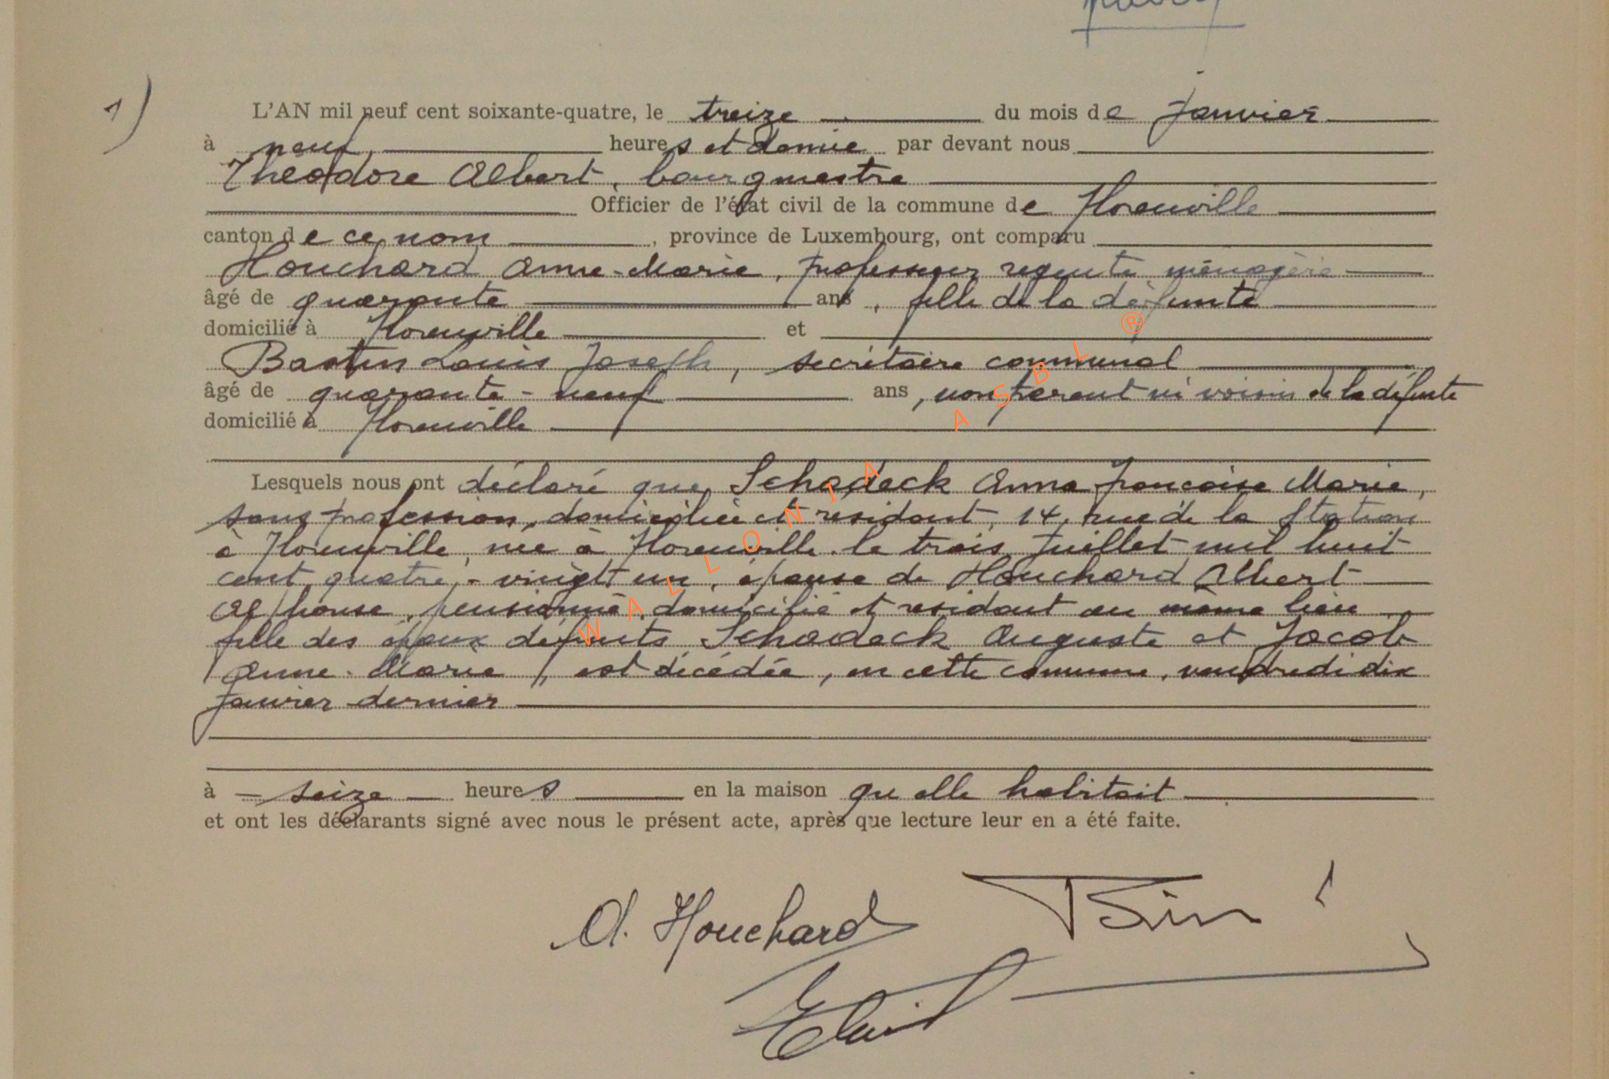 1)
L'AN mil neuf cent soixante-quatre, le treize du mois de Janvier
à neuf heures et demie par devant nous
Théodore Albert, bourgmestre
Officier de l'état civil de la commune de Florenville
canton de ce nom, province de Luxembourg, ont comparu
Houchard Anne-Marie, professeur régente ménagère
âgé de quarante ans, fille de la défunte
domicilié à Florenville et
Bastin Louis Joseph, secrétaire communal
âgé de quarante-neuf ans, non parent ni voisin de la défunte
domicilié à Florenville
Lesquels nous ont déclaré que Schadeck Anna Françoise Marie,
sans profession, domiciliée et résidant, 14, rue de la Station
à Florenville, née à Florenville le trois Juillet mil huit
cent quatre-vingt un, épouse de Houchard Albert
Alphonse, pensionné domicilié et résidant au même lieu
fille des époux défunts Schadeck Auguste et Jacob
Anne-Marie, est décédée, en cette commune, vendredi dix
Janvier dernier
à seize heures en la maison qu'elle habitait
et ont les déclarants signé avec nous le présent acte, après que lecture leur en a été faite.
A. Houchard
WALLONIA ASBL ®